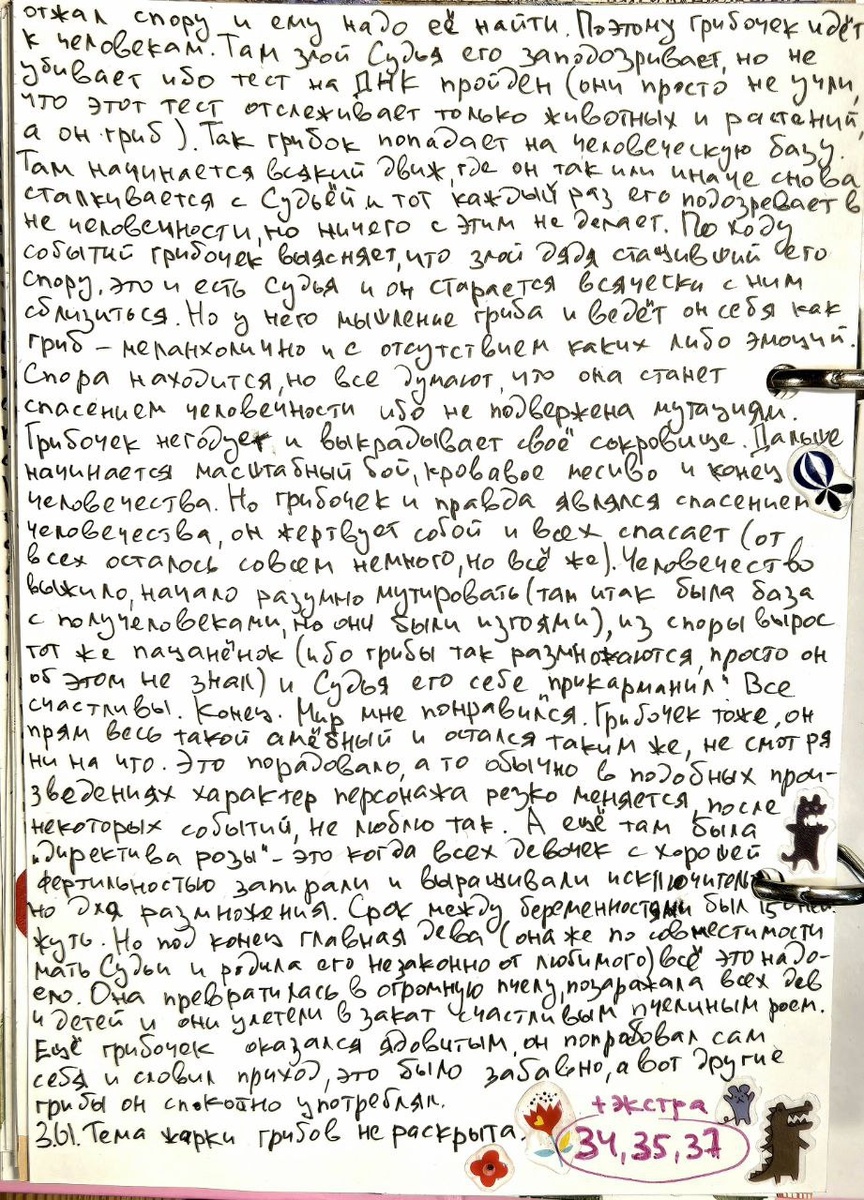 отжал спору и ему надо её найти. Поэтому грибочек идёт
к человекам. Там злой Судья его заподозривает, но не
убивает ибо тест на ДНК пройден (они просто не учли,
что этот тест отслеживает только животных и растений,
а он гриб). Так грибок попадает на человеческую базу.
Там начинается всякий движ, где он так или иначе снова
сталкивается с Судьёй и тот каждый раз его подозревает в
не человечности, но ничего с этим не делает. По ходу
событий грибочек выясняет, что злой дядя стащивший его
спору, это и есть Судья и он старается всячески с ним
сблизиться. Но у него мышление гриба и ведёт он себя как
гриб – меланхолично и с отсутствием каких либо эмоций.
Спора находится, но все думают, что она станет
спасением человечности ибо не подвержена мутациям.
Грибочек негодует и выкрадывает своё сокровище. Дальше
начинается масштабный бой, кровавое месиво и конец
человечества. Но грибочек и правда являлся спасением
человечества, он жертвует собой и всех спасает (от
всех осталось совсем немного, но всё же). Человечество
выжило, начало разумно мутировать (там итак была база
с получеловеками, но они были изгоями), из споры вырос
тот же пацанёнок (ибо грибы так размножаются, просто он
об этом не знал) и Судья его себе "прикарманил". Все
счастливы. Конец. Мир мне понравился. Грибочек тоже, он
прям весь такой амёбный и остался таким же, не смотря
ни на что. Это порадовало, а то обычно в подобных прои-
зведениях характер персонажа резко меняется после
некоторых событий, не люблю так. А ещё там была
„директива розы" – это когда всех девочек с хорошей
фертильностью запирали и выращивали исключитель-
но для размножения. Срок между беременностями был 15 дней.
жуть. Но под конец главная дева (она же по совместимости
мать Судьи и родила его незаконно от любимого) всё это надо-
ело. Она превратилась в огромную пчелу, позаражала всех дев
и детей и они улетели в закат счастливым пчелиным роем.
Ещё грибочек оказался ядовитым, он попробовал сам
себя и словил приход, это было забавно, а вот другие
грибы он спокойно употреблял.
З.Ы. Тема жарки грибов не раскрыта.
+экстра
34, 35, 37